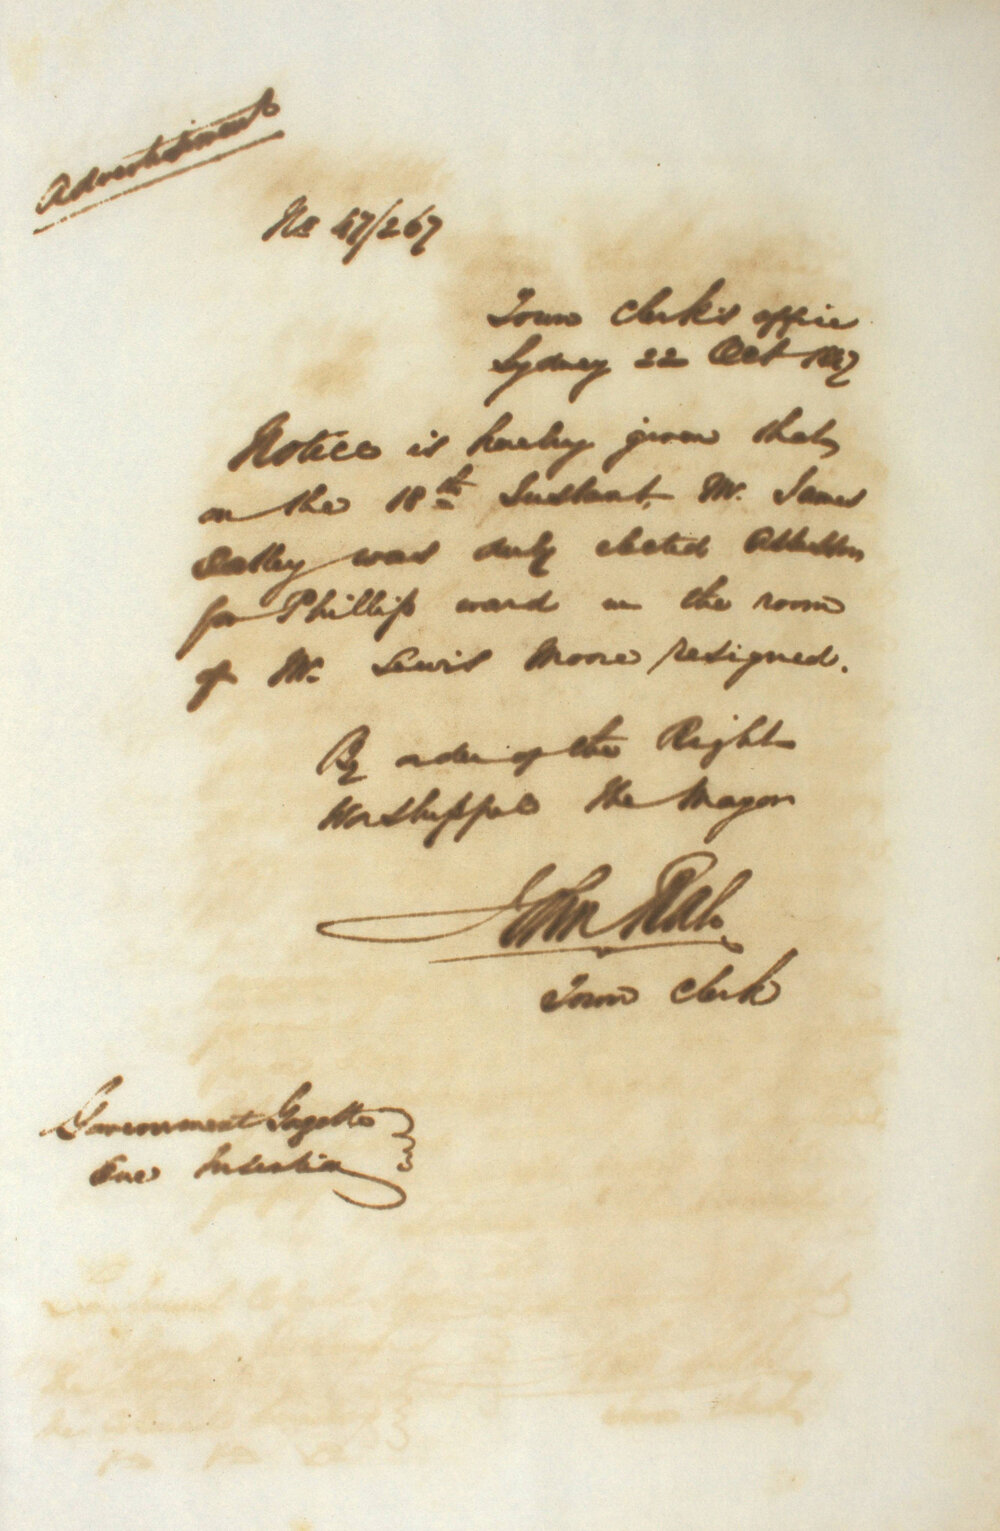 Advertisement
No 47/267
Town Clerk's office
Sydney 22 Oct 1847
Notice is hereby given that
on the 18th Instant, Mr. James
Oatley was duly elected
for Phillip ward in the room
of Mr. Lewis Moore resigned.
By order of the Right
Worshipful the Mayor
John Rae
Town Clerk
Government Gazette
One Insertion